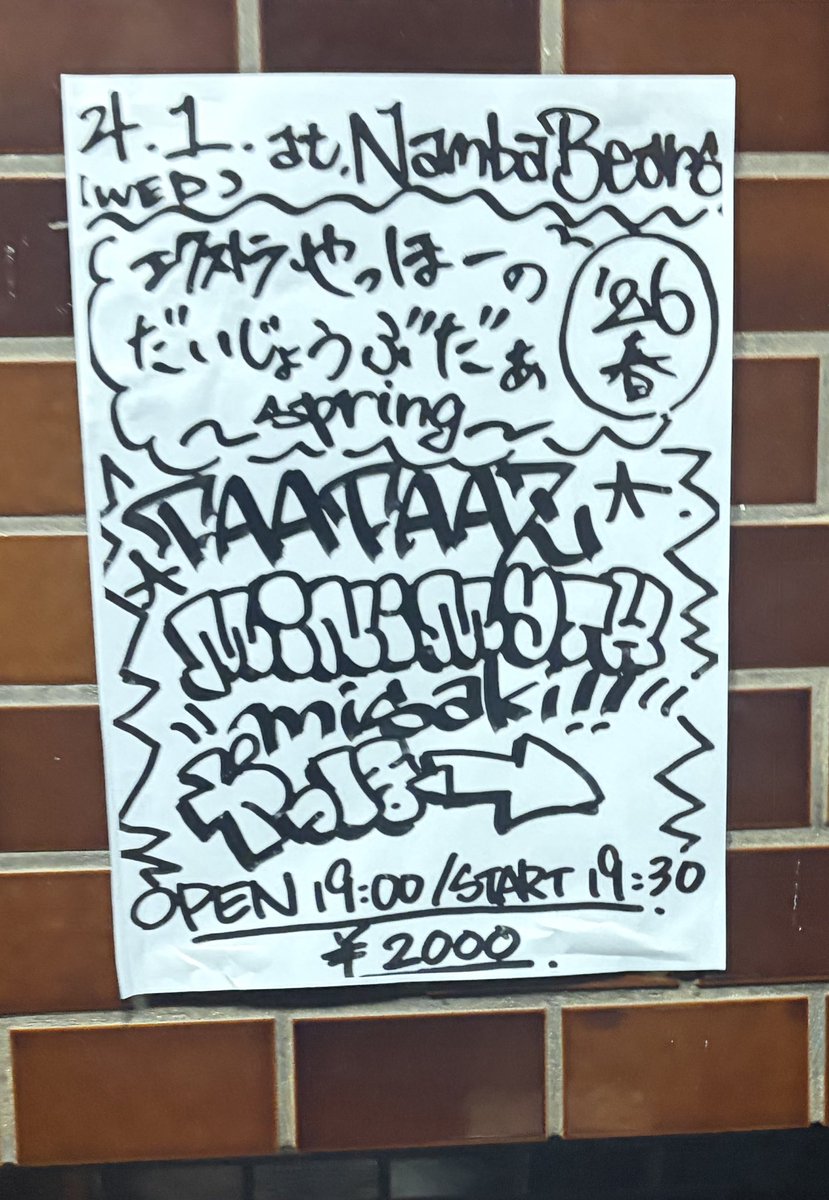 4.1. at. Namba Bears
(WED)
エクストラやっほーの
だいじょうぶだぁ
~spring~
'26
春
TAATAAZ
MINIMYTH
misaki!!!
やっほー
OPEN 19:00/START 19:30.
¥2000.